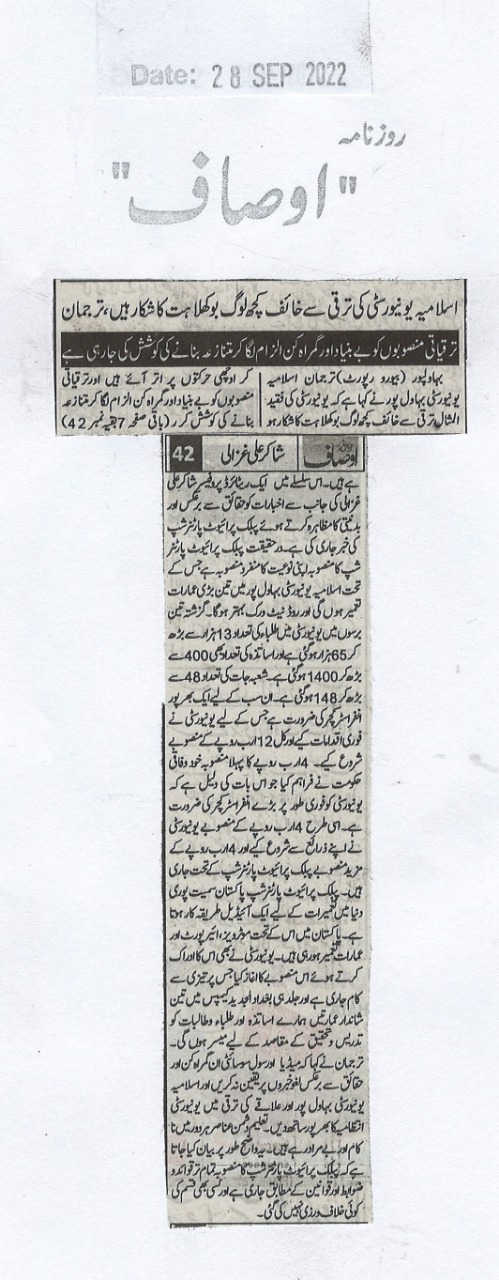 Date: 28 SEP 2022
روزنامہ
"اوصاف"
اسلامیہ یونیورسٹی کی ترقی سے خائف کچھ لوگ بوکھلاہٹ کا شکار ہیں، ترجمان
ترقیاتی منصوبوں کو بے بنیاد اور گمراہ کن الزام لگا کر متنازعہ بنانے کی کوشش کی جا رہی ہے
بہاولپور (بیورو رپورٹ) ترجمان اسلامیہ
یونیورسٹی بہاول پور نے کہا ہے کہ یونیورسٹی کی فقید
المثال ترقی سے خائف کچھ لوگ بوکھلاہٹ کا شکار ہو
کر اوچھی حرکتوں پر اتر آئے ہیں اور ترقیاتی
منصوبوں کو بے بنیاد اور گمراہ کن الزام لگا کر متنازعہ
بنانے کی کوشش کر ر (باقی صفحہ 7 بقیہ نمبر 42)
اوصاف شاکر علی غزالی 42
ہے ہیں۔ اس سلسلے میں ایک ریٹائرڈ پروفیسر شاکر علی
غزالی کی جانب سے اخبارات کو حقائق سے برعکس اور
بدنیتی کا مظاہرہ کرتے ہوئے پبلک پرائیوٹ پارٹنرشپ
کی خبر جاری کی ہے۔ درحقیقت پبلک پرائیوٹ پارٹنر
شپ کا منصوبہ اپنی نوعیت کا منفرد منصوبہ ہے جس کے
تحت اسلامیہ یونیورسٹی بہاول پور میں تین بڑی عمارات
تعمیر ہوں گی اور روڈ نیٹ ورک بہتر ہوگا۔ گزشتہ تین
برسوں میں یونیورسٹی میں طلباء کی تعداد 13 ہزار سے بڑھ
کر 65 ہزار ہو گئی ہے اور اساتذہ کی تعداد بھی 400 سے
بڑھ کر 1400 ہو گئی ہے۔ شعبہ جات کی تعداد 48 سے
بڑھ کر 148 ہو گئی ہے۔ ان سب کے لیے ایک بھرپور
انفراسٹرکچر کی ضرورت ہے جس کے لیے یونیورسٹی نے
فوری اقدامات کیے اور کل 12 ارب روپے کے منصوبے
شروع کیے۔ 4 ارب روپے کا پہلا منصوبہ خود وفاقی
حکومت نے فراہم کیا جو اس بات کی دلیل ہے کہ
یونیورسٹی کو فوری طور پر بڑے انفراسٹرکچر کی ضرورت
ہے۔ اسی طرح 4 ارب روپے کے منصوبے یونیورسٹی
نے اپنے ذرائع سے شروع کیے اور 4 ارب روپے کے
مزید منصوبے پبلک پرائیوٹ پارٹنرشپ کے تحت جاری
ہیں۔ پبلک پرائیوٹ پارٹنرشپ پاکستان سمیت پوری
دنیا میں تعمیرات کے لیے ایک آئیڈیل طریقہ کار ہوتا
ہے۔ پاکستان میں اس کے تحت موٹرویز، ائیرپورٹ اور
عمارات تعمیر ہو رہی ہیں۔ یونیورسٹی نے بھی اس کا ادراک
کرتے ہوئے اس منصوبے کا آغاز کیا جس پر تیزی سے
کام جاری ہے اور جلد ہی بغداد الجدید کیمپس میں تین
شاندار عمارتیں ہمارے اساتذہ اور طلباء و طالبات کو
تدریس و تحقیق کے مقاصد کے لیے میسر ہوں گی۔
ترجمان نے کہا کہ میڈیا اور سول سوسائٹی ان گمراہ کن اور
حقائق سے برعکس لغو خبروں پر یقین نہ کریں اور اسلامیہ
یونیورسٹی بہاول پور اور علاقے کی ترقی میں یونیورسٹی
انتظامیہ کا بھرپور ساتھ دیں۔ تعلیم دشمن عناصر ہر دور میں نا
کام اور بے مراد رہے ہیں۔ یہ واضح طور پر بیان کیا جاتا
ہے کہ پبلک پرائیوٹ پارٹنرشپ کا منصوبہ تمام تر قواعد و
ضوابط اور قوانین کے مطابق جاری ہے اور کسی بھی قسم کی
کوئی خلاف ورزی نہیں کی گئی۔